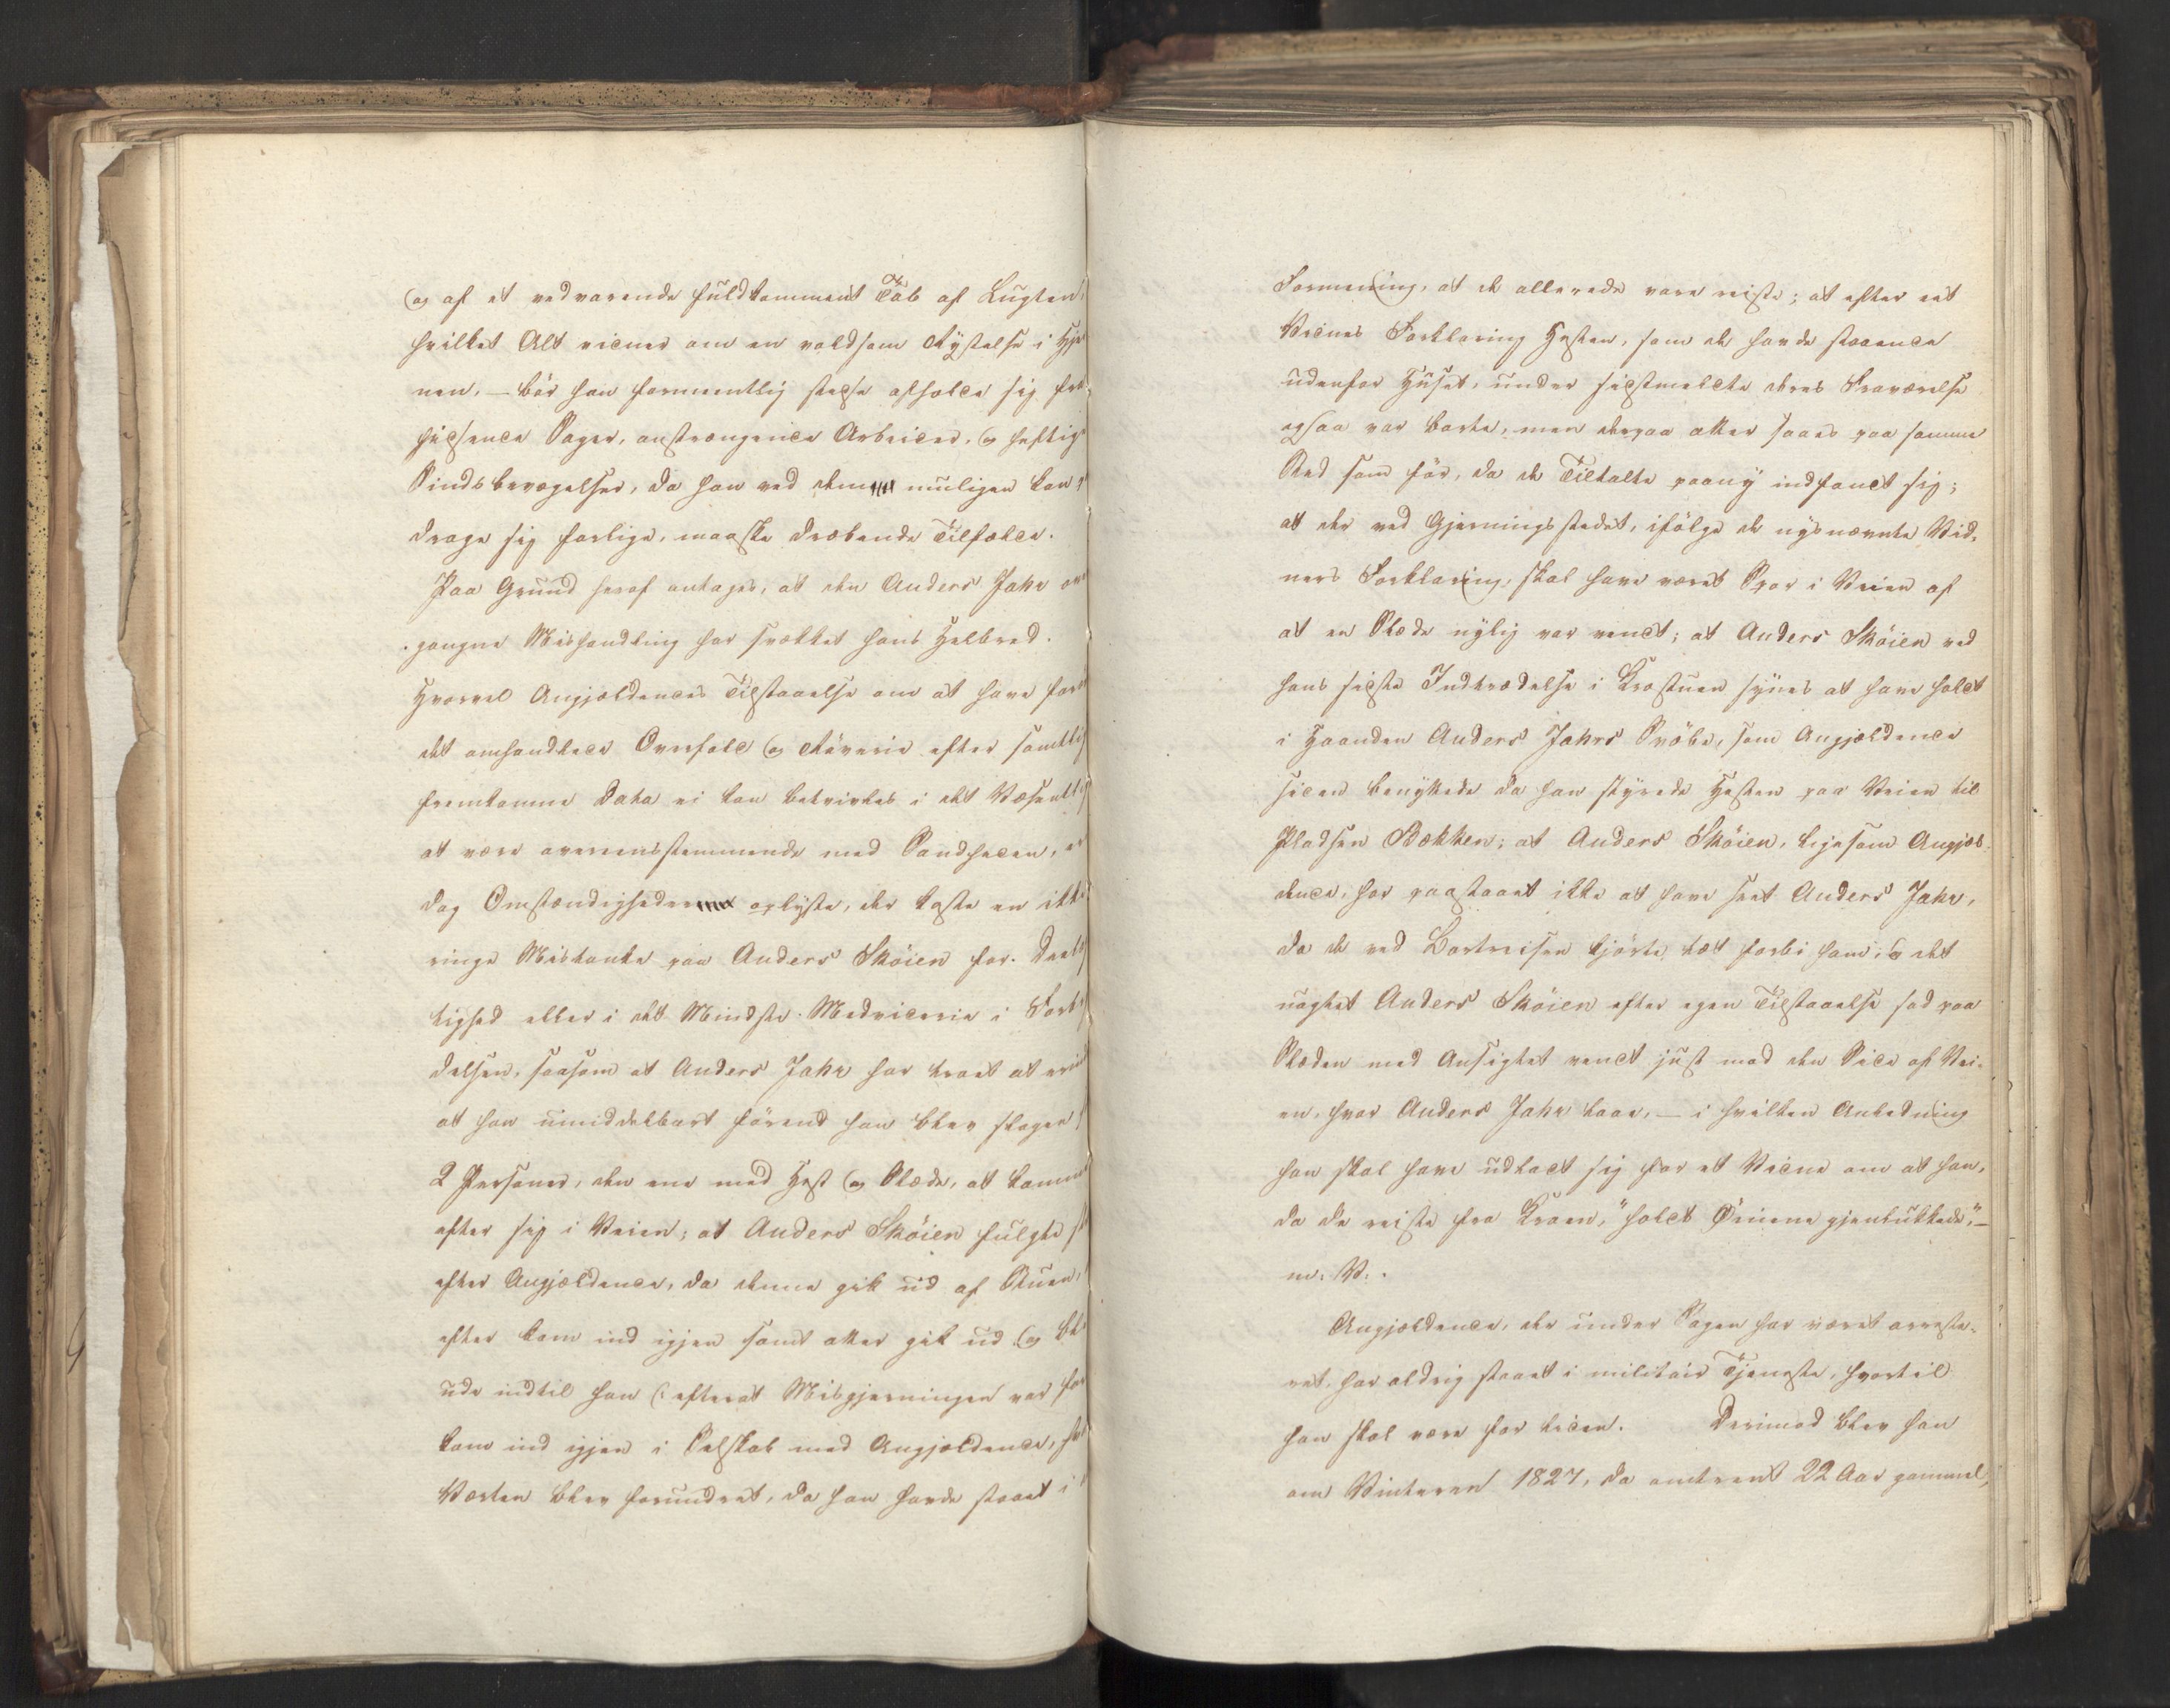 og af et vedvarende fuldkomment Tab af Lugten,
hvilket Alt vidner om en voldsom Rystelse i Hjer
nen, – bør han formeentlig stedse afholde sig fra
hidsende Sager, anstrængende Arbeider, og heftige
Sindsbevægelser, da han ved dem muligen kan
drage sig farlige, maaskee dræbende Tilfælde.
Paa Grund heraf antages, at den Anders Jahr over
gangne Mishandling har svækket hans Helbred.
Hvorvel Angjældendes Tilstaaelse om at have for
det omhandlede Overfald og Røverie efter samtlig
fremkomne Data ei kan betvivles i det Væsentlig
at være overensstemmende med Sandheden, er
dog Omstændigheder oplyste, der kaste en ikke
ringe Mistanke paa Anders Skøien for Deelag
tighed eller i det Mindste Medviderie i Forb
delsen, saasom at Anders Jahr har troet at
at han umiddelbart førend han blev slagen
2 Personer, den ene med Hest og Slæde, at komme
efter sig i Veien; at Anders Skøien fulgte
efter Angjældende, da denne gik ud af Stuen,
efter kom ind igjen samt atter gik ud og ble
ude indtil han (: efterat Misgjerningen var for
kom ind igjen i Selskab med Angjældende,
Værten blev forundret, da han havde staaet i
Formening, at de allerede vare reiste; at efter eet
Vidnes Forklaring Hesten, som de havde staaende
udenfor Huset, under sidstmeldte deres Fraværelse
ogsaa var borte, men derpaa atter saaes paa samme
Sted som før, da de Tiltalte paany indfandt sig;
at der ved Gjerningsstedet, ifølge de nysnævnte Vid-
ners Forklaring, skal have været Spor i Veien af
at en Slæde nylig var vendt; at Anders Skøien ved
hans sidste Indtrædelse i Krostuen synes at have holdt
i Haanden Anders Jahrs Svøbe, som Angjældende
siden benyttede da han styrede Hesten paa Veien til
Pladsen Bækken; at Anders Skøien, ligesom Angjæl-
dende, har paastaaet ikke at have seet Anders Jahr,
da de ved Bortreisen kjørte tæt forbi ham, og det
uagtet Anders Skøien efter egen Tilstaaelse sad paa
Slæden med Ansigtet vendt just mod den Side af Vei-
en, hvor Anders Jahr laae, – i hvilken Anledning
han skal have udladt sig for et Vidne om at han,
da de reiste fra Kroen, "holdt Øinene gjenlukkede," –
m: V: .
Angjældende, der under Sagen har været arreste-
ret, har aldrig staaet i militair Tjeneste, hvortil
han skal være for liden. Derimod blev han
om Vinteren 1827, da omtrent 22 Aar gammel,